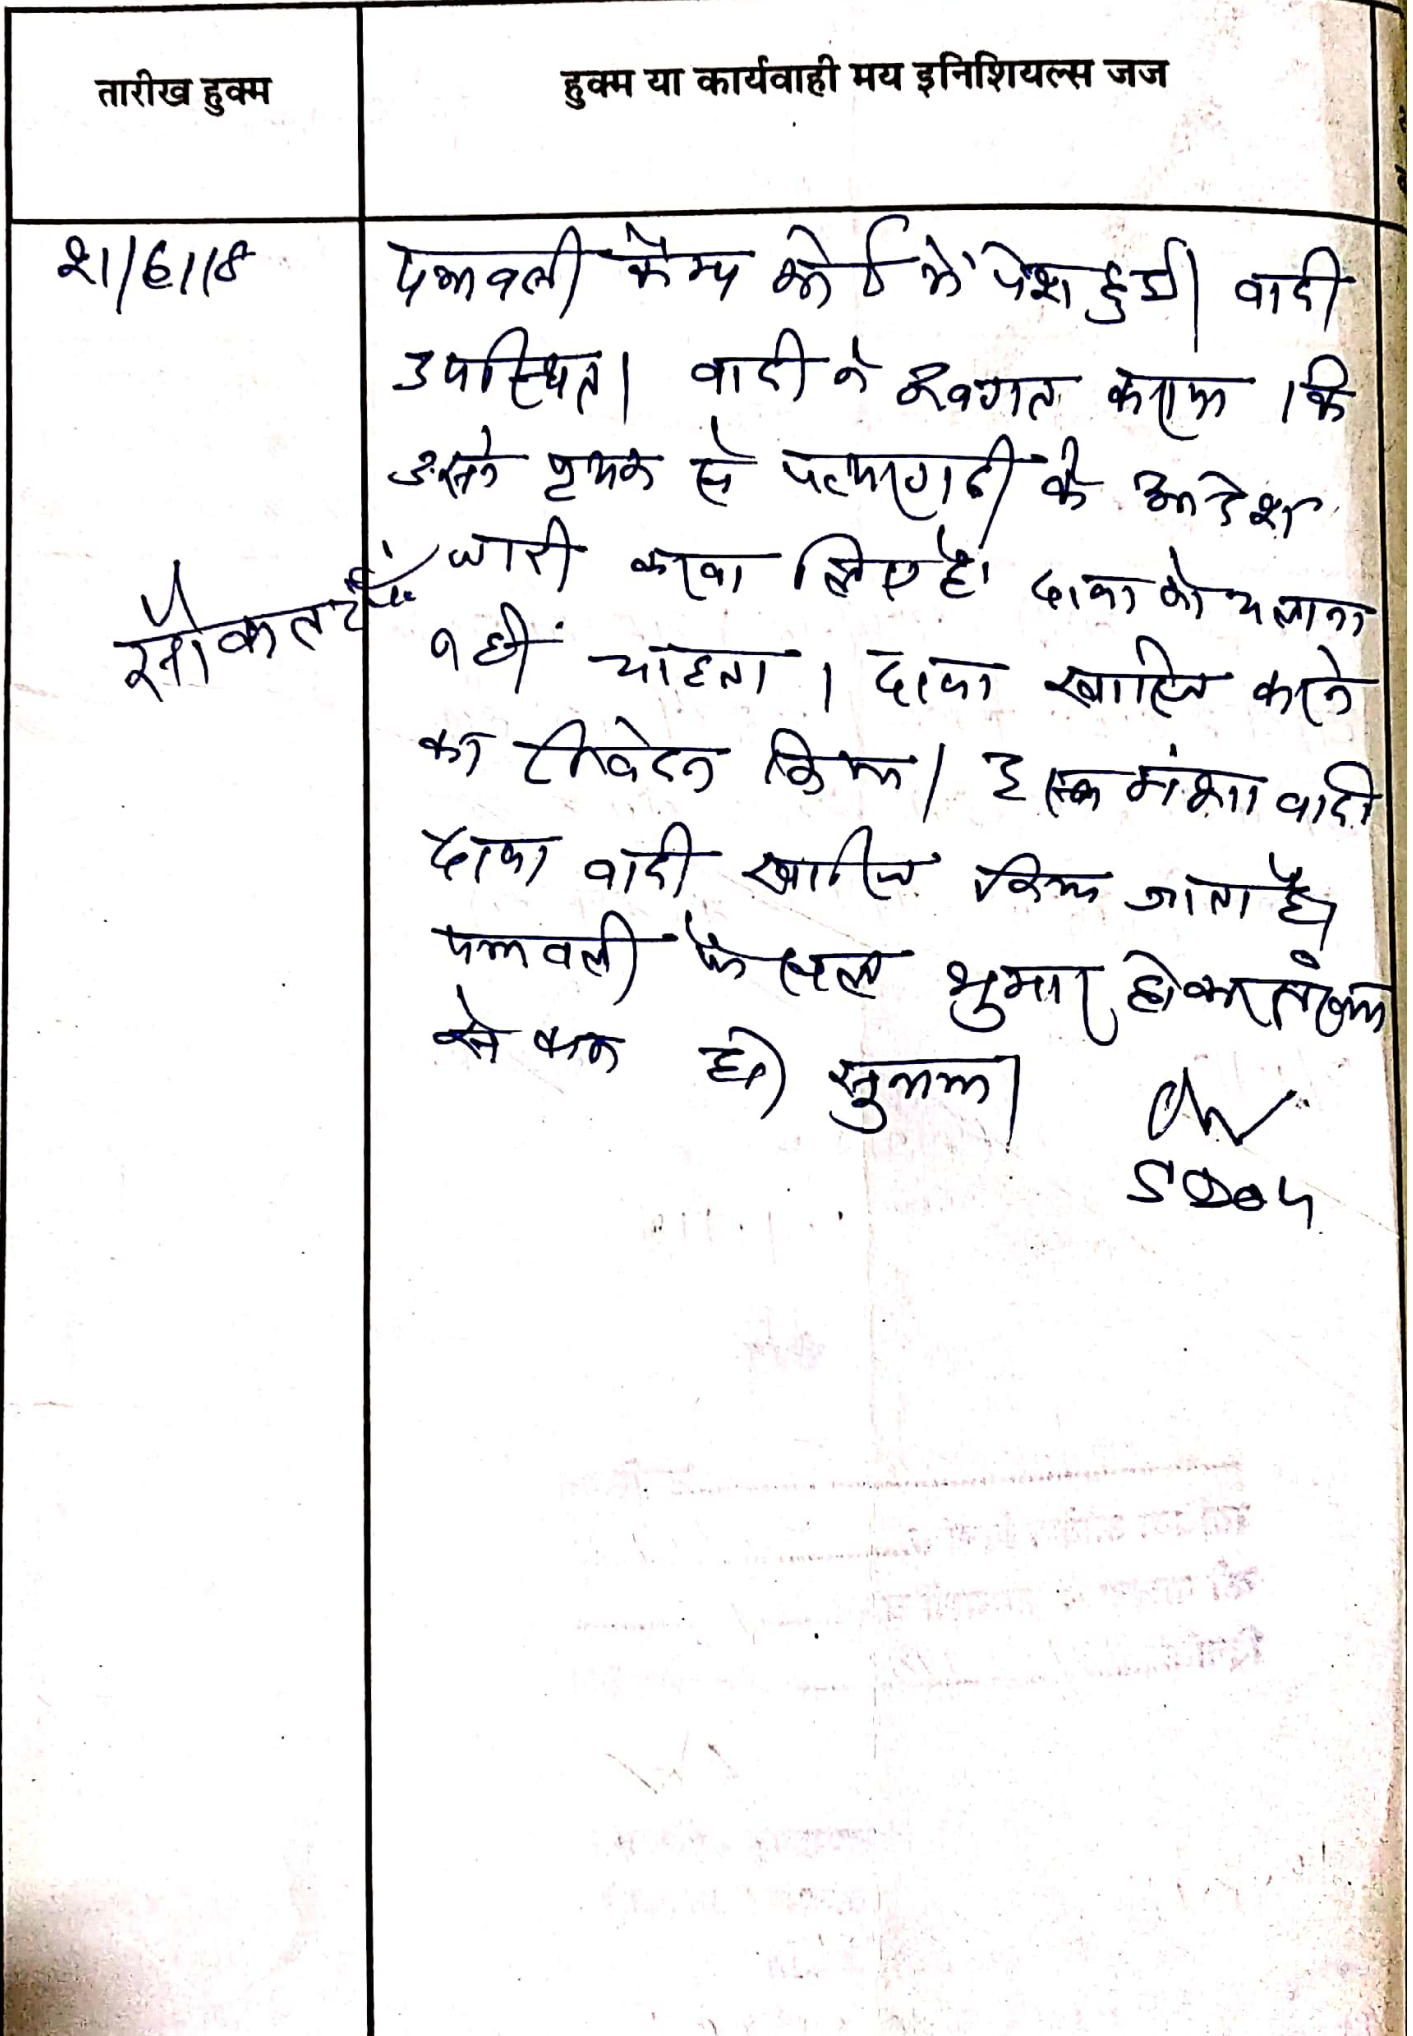 तारीख हुक्म
हुक्म या कार्यवाही मय इनिशियल्स जज
21/6/18
पत्रावली कैम्प कोर्ट में पेश हुई। वादी
उपस्थित। वादी ने अवगत कराया कि
उसने पृथक से पत्थरगढ़ी के आदेश
जारी करवा लिए है। दावा को चलाना
नहीं चाहता। दावा खारिज करने
का निवेदन किया। मंशा वादी
दावा वादी खारिज किया जाता है।
पत्रावली फैसल शुमार होकर
से कम हो। सुनाया।